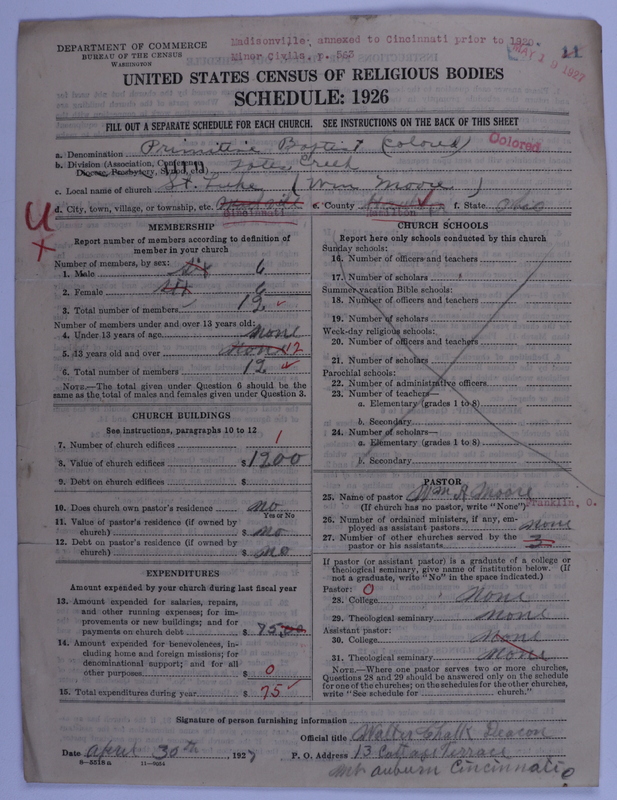 DEPARTMENT OF COMMERCE
BUREAU OF THE CENSUS
WASHINGTON
Madisonville, annexed to Cincinnati prior to 1920.
Minor Civils, p. 563
MAY 19 1927
11
UNITED STATES CENSUS OF RELIGIOUS BODIES
SCHEDULE: 1926
FILL OUT A SEPARATE SCHEDULE FOR EACH CHURCH. SEE INSTRUCTIONS ON THE BACK OF THIS SHEET
Colored
a. Denomination Primitive Baptist (colored)
b. Division (Association, Conference, Diocese, Presbytery, Synod, etc.) Creek
c. Local name of church St. Luke (Wm Moore)
d. City, town, village, or township, etc. Cincinnati e. County Hamilton f. State Ohio
MEMBERSHIP
Report number of members according to definition of
member in your church
Number of members, by sex:
1. Male six 6
2. Female six 6
3. Total number of members 12
Number of members under and over 13 years old:
4. Under 13 years of age none
5. 13 years old and over none 12
6. Total number of members 12
NOTE.—The total given under Question 6 should be the
same as the total of males and females given under Question 3.
CHURCH BUILDINGS
See instructions, paragraphs 10 to 12
7. Number of church edifices 1
8. Value of church edifices $1200
9. Debt on church edifices $
10. Does church own pastor's residence no
Yes or No
11. Value of pastor's residence (if owned by
church) $ no
12. Debt on pastor's residence (if owned by
church) $ no
EXPENDITURES
Amount expended by your church during last fiscal year
13. Amount expended for salaries, repairs,
and other running expenses; for im-
provements or new buildings; and for
payments on church debt $ 75.00
14. Amount expended for benevolences, in-
cluding home and foreign missions; for
denominational support; and for all
other purposes $ 0
15. Total expenditures during year $ 75
CHURCH SCHOOLS
Report here only schools conducted by this church
Sunday schools:
16. Number of officers and teachers
17. Number of scholars
Summer vacation Bible schools:
18. Number of officers and teachers
19. Number of scholars
Week-day religious schools:
20. Number of officers and teachers
21. Number of scholars
Parochial schools:
22. Number of administrative officers
23. Number of teachers—
a. Elementary (grades 1 to 8)
b. Secondary
24. Number of scholars—
a. Elementary (grades 1 to 8)
b. Secondary
PASTOR
25. Name of pastor Wm R Moore
(If church has no pastor, write "None") Franklin, O.
26. Number of ordained ministers, if any, em-
ployed as assistant pastors none
27. Number of other churches served by the
pastor or his assistants 3
If pastor (or assistant pastor) is a graduate of a college or
theological seminary, give name of institution below. (If
not a graduate, write "No" in the space indicated.)
Pastor: 0
28. College None
29. Theological seminary none
Assistant pastor:
30. College none
31. Theological seminary none
NOTE.—Where one pastor serves two or more churches,
Questions 28 and 29 should be answered only on the schedule
for one of the churches; on the schedules for the other churches,
write "See schedule for church."
Signature of person furnishing information
Official title Walter Chalk Deacon
Date april 30th, 1927 P. O. Address 13 Cottage Terrace
8—5518 a 11—9564
mt auburn Cincinnati O